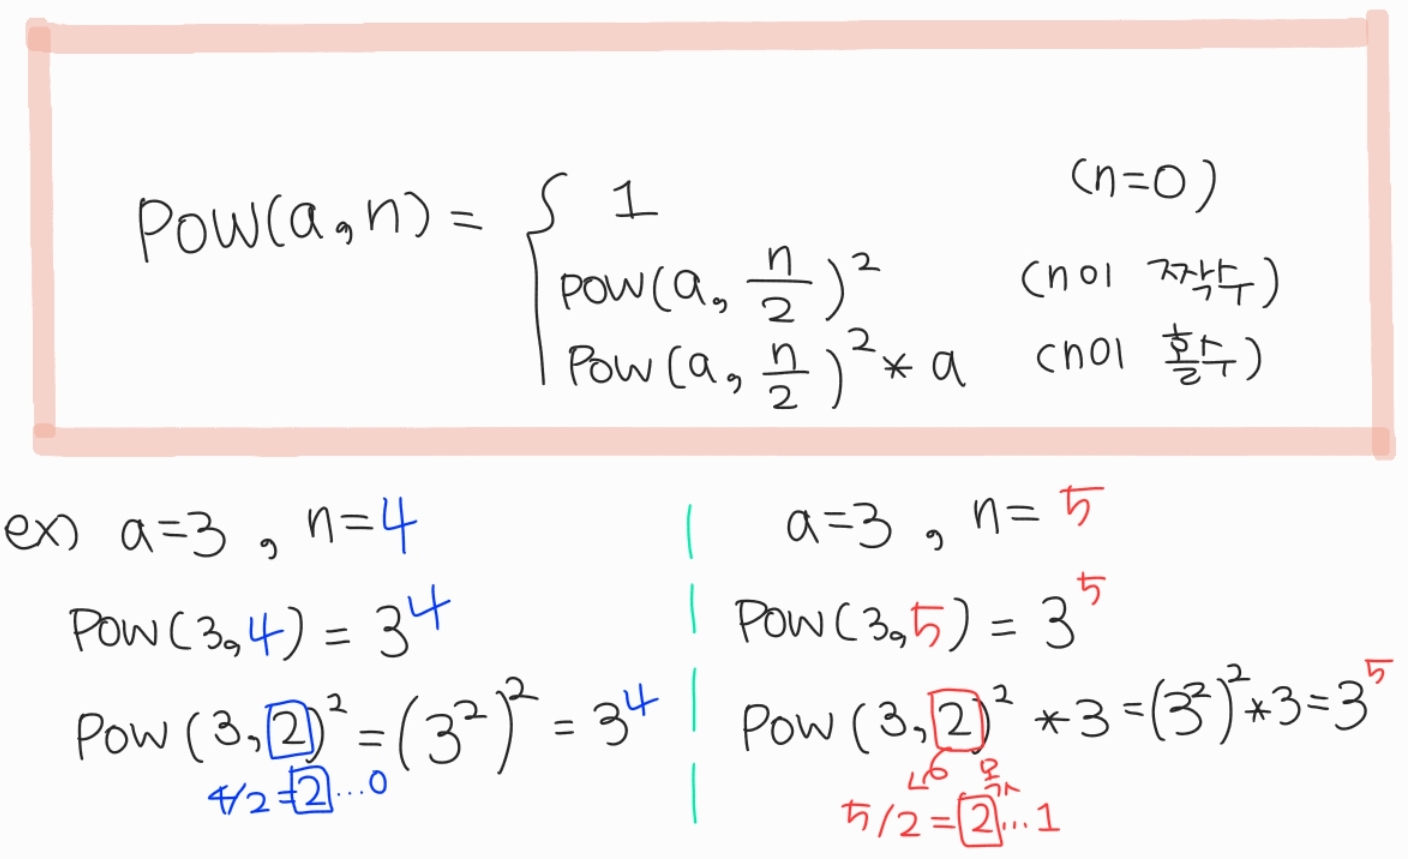 Pow(a, n) = { 1 (n=0)
pow(a, n/2)² (n이 짝수)
Pow(a, n/2)² * a (n이 홀수)
ex) a=3, n=4
Pow(3,4) = 3⁴
Pow(3,2)² = (3²)² = 3⁴
4/2=2...0
a=3, n=5
Pow(3,5) = 3⁵
Pow(3,2)² *3=(3²)²*3=3⁵
몫
5/2=2...1